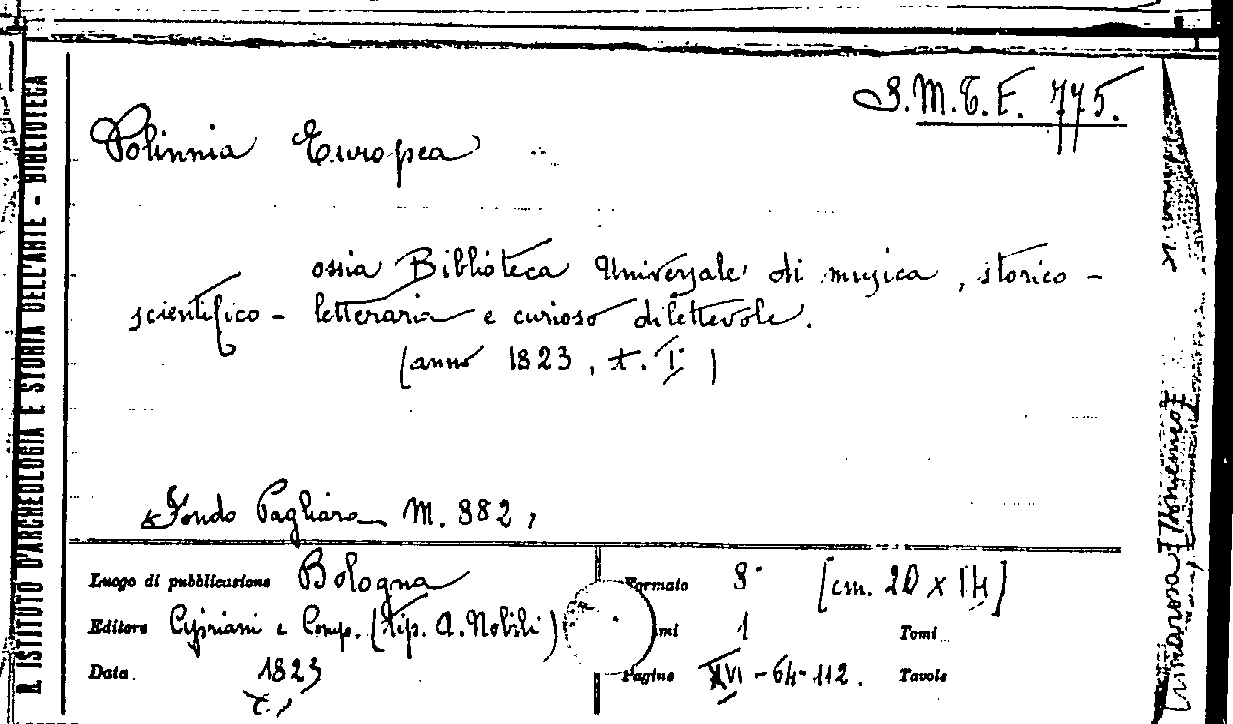 R. ISTITUTO D'ARCHEOLOGIA E STORIA DELL'ARTE - BIBLIOTECA
S.M.T.E. 775.
Polinnia Europea
ossia Biblioteca Universale di musica, storico-
scientifico-letteraria e curioso dilettevole.
(anno 1823, t. I.)
Fondo Pagliara M. 882,
Luogo di pubblicazione Bologna
Formato 8° [cm. 20 x 14]
Editore Cipriani e Comp. (tip. A. Nobili)
1 Tomi
Data 1823
Pagine XVI-64-112. Tavole